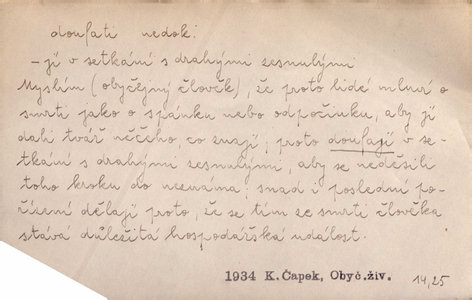 doufati nedok.
-jí v setkání s drahými zesnulými
Myslím (obyčejný člověk), že proto lidé mluví o
smrti jako o spánku nebo odpočinku, aby jí
dali tvář něčeho, co znají; proto doufají v se-
tkání s drahými zesnulými, aby se neděsili
toho kroku do neznáma; snad i poslední po-
řízení dělají proto, že se tím ze smrti člověka
stává důležitá hospodářská událost.
1934 K.Čapek, Obyč.živ. 14,25